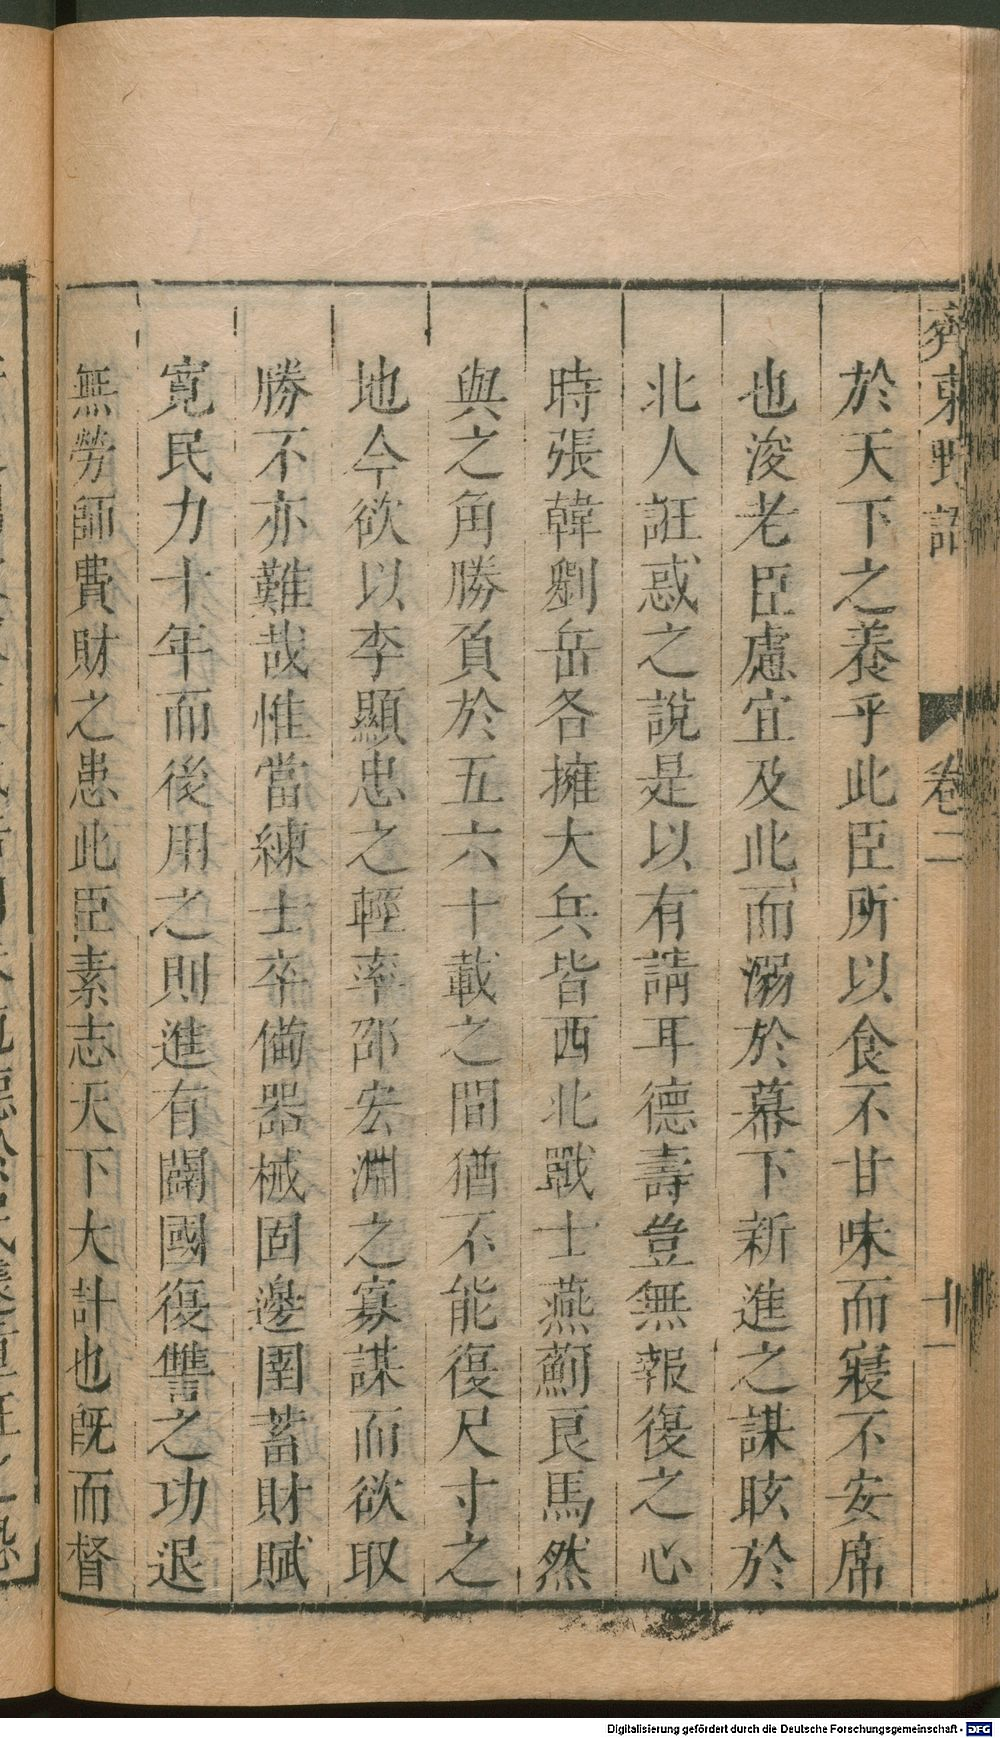 齊東野語
卷二
十一
於天下之養乎此臣所以食不甘味而寢不安席
也浚老臣慮宜及此而溺於幕下新進之謀眩於
北人誑惑之說是以有請耳德壽豈無報復之心
時張韓劉岳各擁大兵皆西北戰士燕薊良馬然
與之角勝負於五六十載之間猶不能復尺寸之
地今欲以李顯忠之輕率邵宏淵之寡謀而欲取
勝不亦難哉惟當練士卒備器械固邊圉蓄財賦
寬民力十年而後用之則進有闢國復讐之功退
無勞師費財之患此臣素志天下大計也既而督
Digitalisierung gefördert durch die Deutsche Forschungsgemeinschaft - DFG